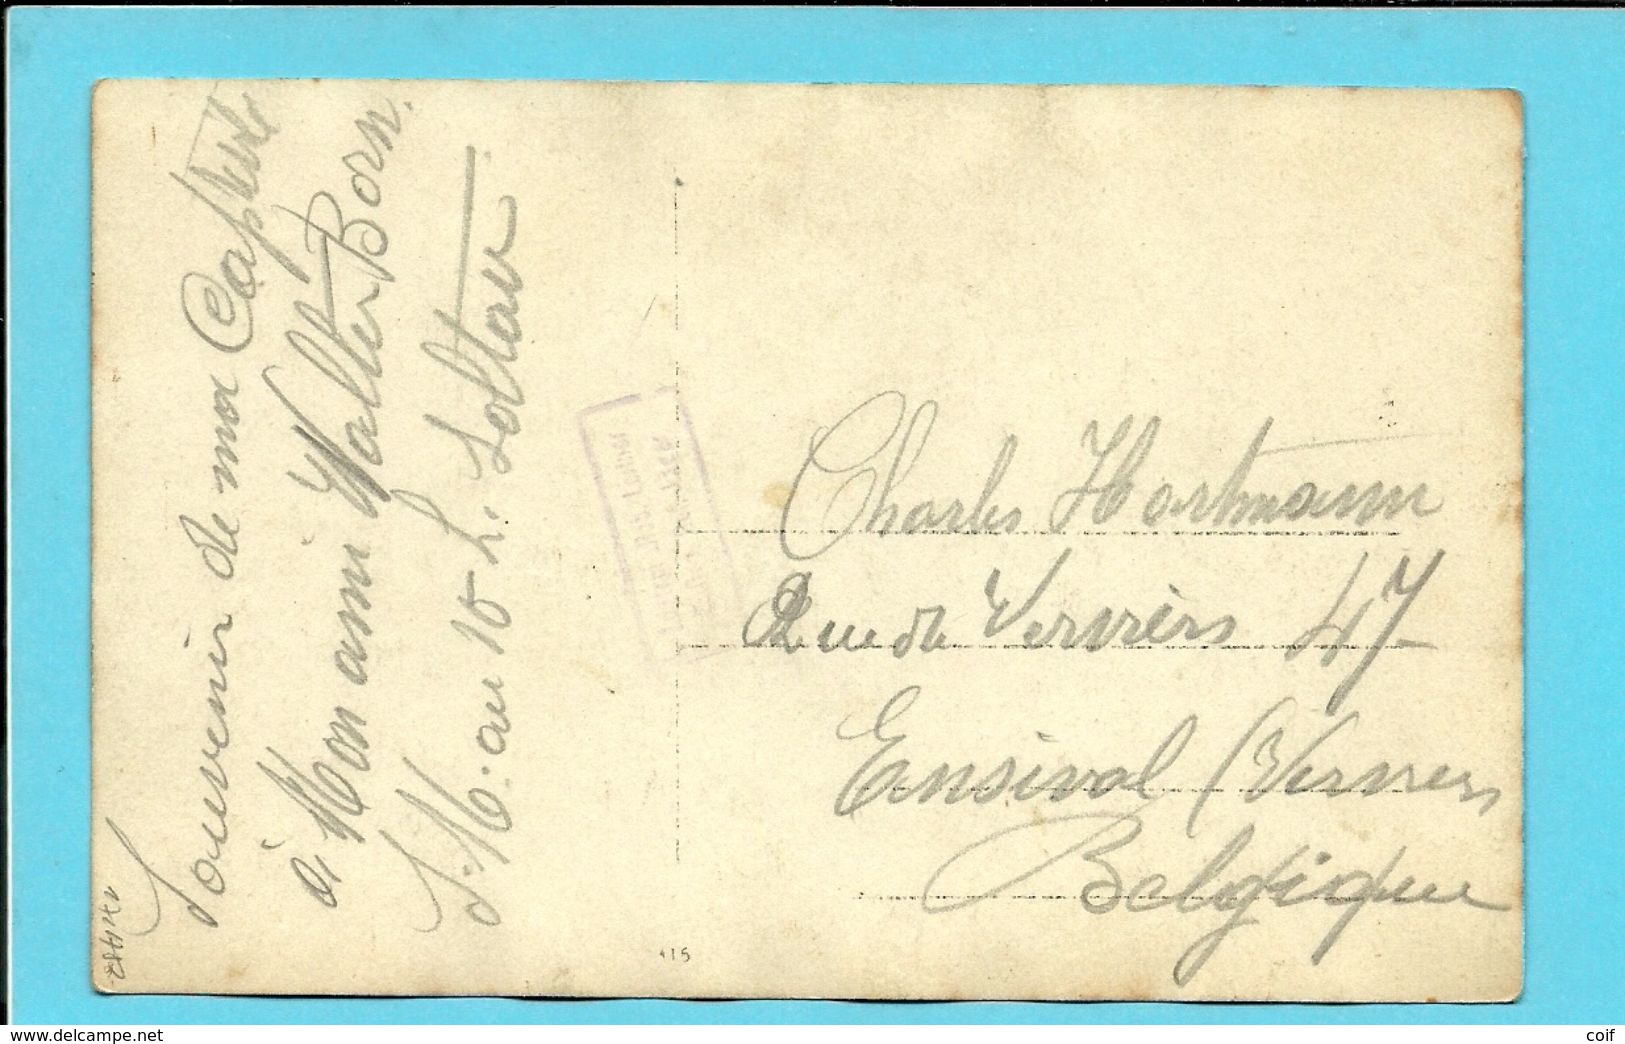 Souvenir de ma Captivité
à Mon ami Walter Born.
S. M. au 10 L. Soltau
Charles Hartmann
Rue de Verviers 47
Ensival (Verviers
Belgique
415
delcampe.net
coif